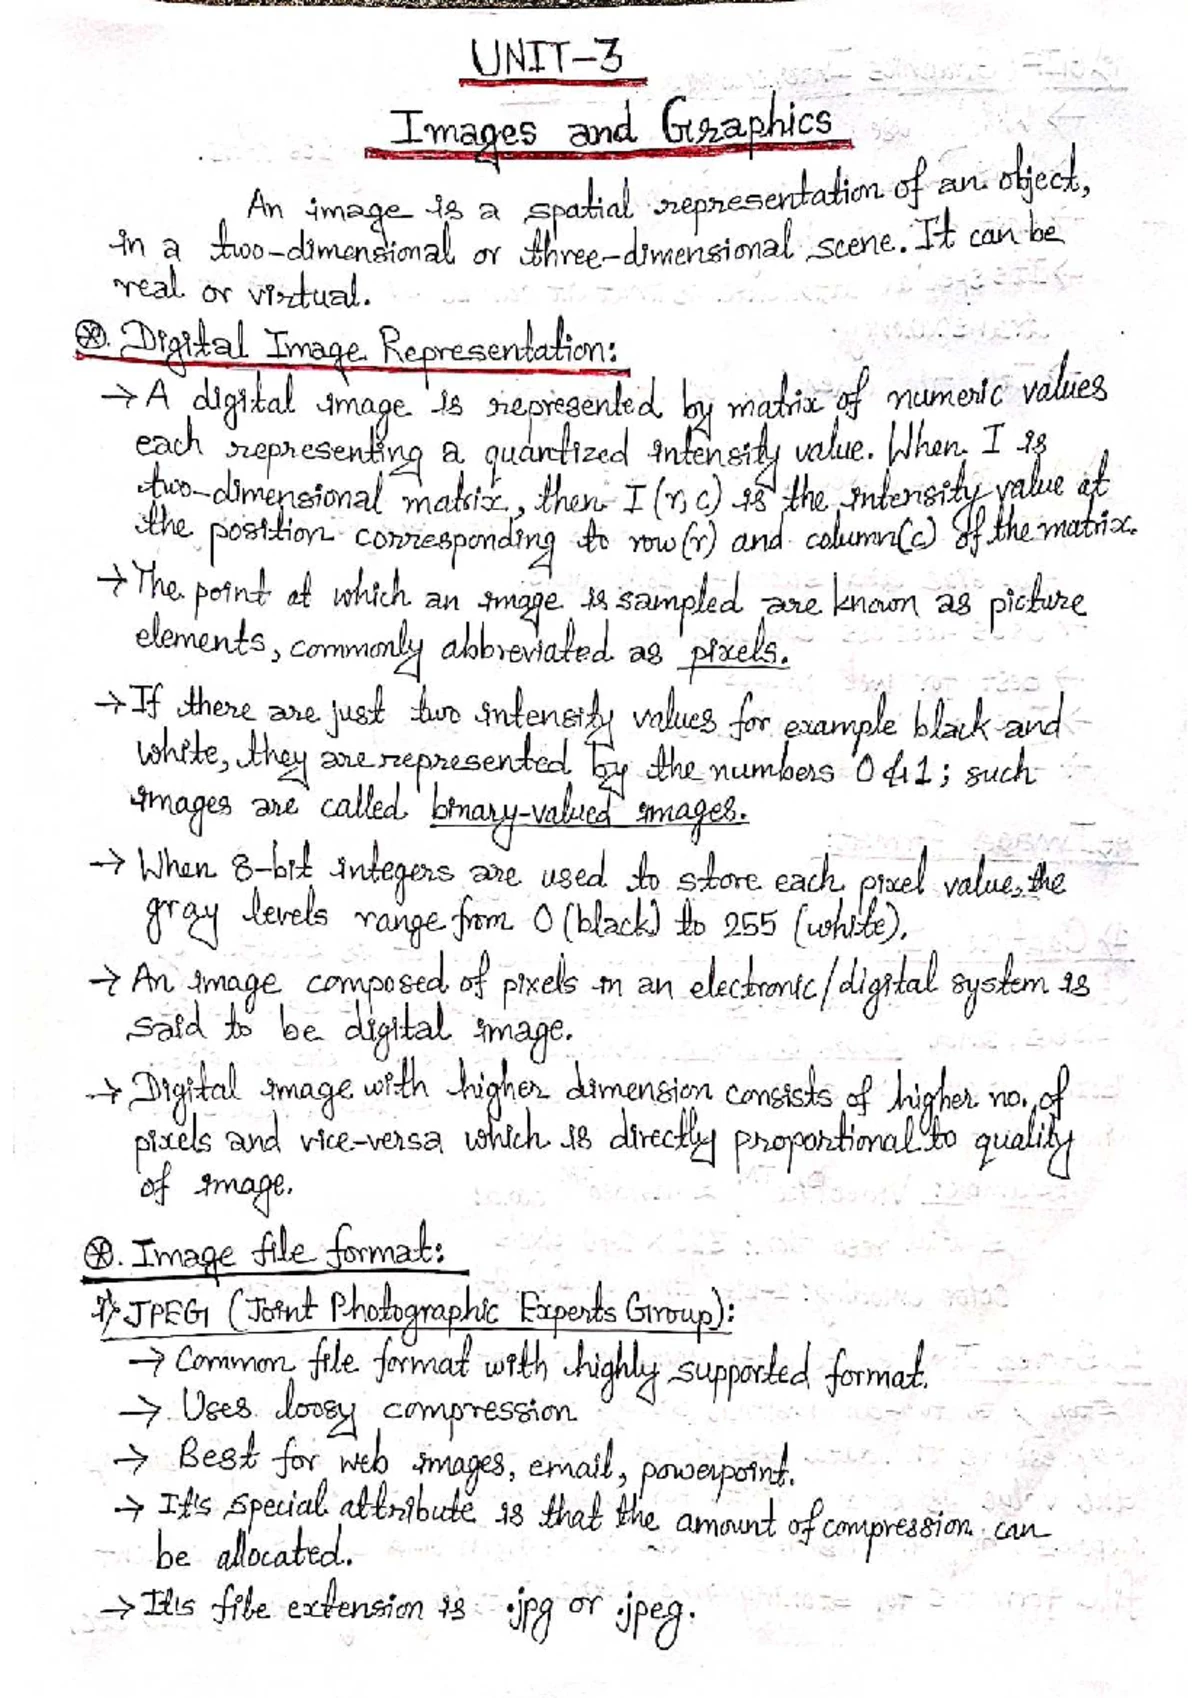 UNIT-3
Images and Graphics
An image is a spatial representation of an object,
in a two-dimensional or three-dimensional scene. It can be
real or virtual.
⊛. Digital Image Representation:
→ A digital image is represented by matrix of numeric values
each representing a quantized intensity value. When I is
two-dimensional matrix, then I (r, c) is the intensity value at
the position corresponding to row (r) and column (c) of the matrix.
→ The point at which an image is sampled are known as picture
elements, commonly abbreviated as pixels.
→ If there are just two intensity values for example black and
white, they are represented by the numbers 0 & 1; such
images are called binary-valued images.
→ When 8-bit integers are used to store each pixel value, the
gray levels range from 0 (black) to 255 (white).
→ An image composed of pixels in an electronic/digital system is
said to be digital image.
→ Digital image with higher dimension consists of higher no. of
pixels and vice-versa which is directly proportional to quality
of image.
⊛. Image file format:
1) JPEG (Joint Photographic Experts Group):
→ Common file format with highly supported format.
→ Uses loosy compression
→ Best for web images, email, powerpoint.
→ It's special attribute is that the amount of compression can
be allocated.
→ It's file extension is .jpg or .jpeg.